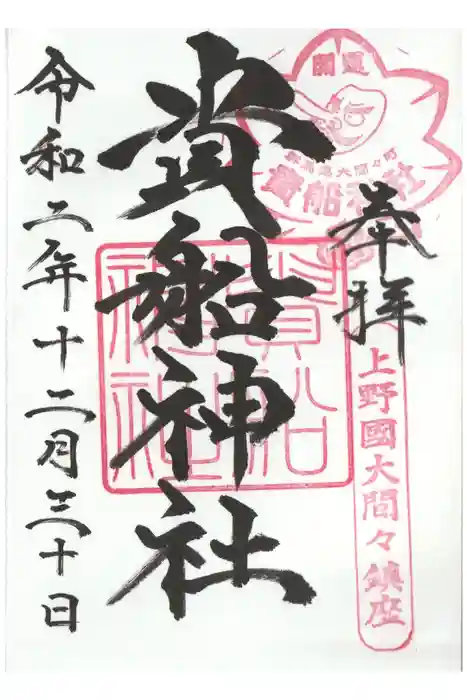 奉拝
上野國大間々鎮座
開運
大間々町
貴船神社
貴船神社
貴船神社
令和二年十二月三十日